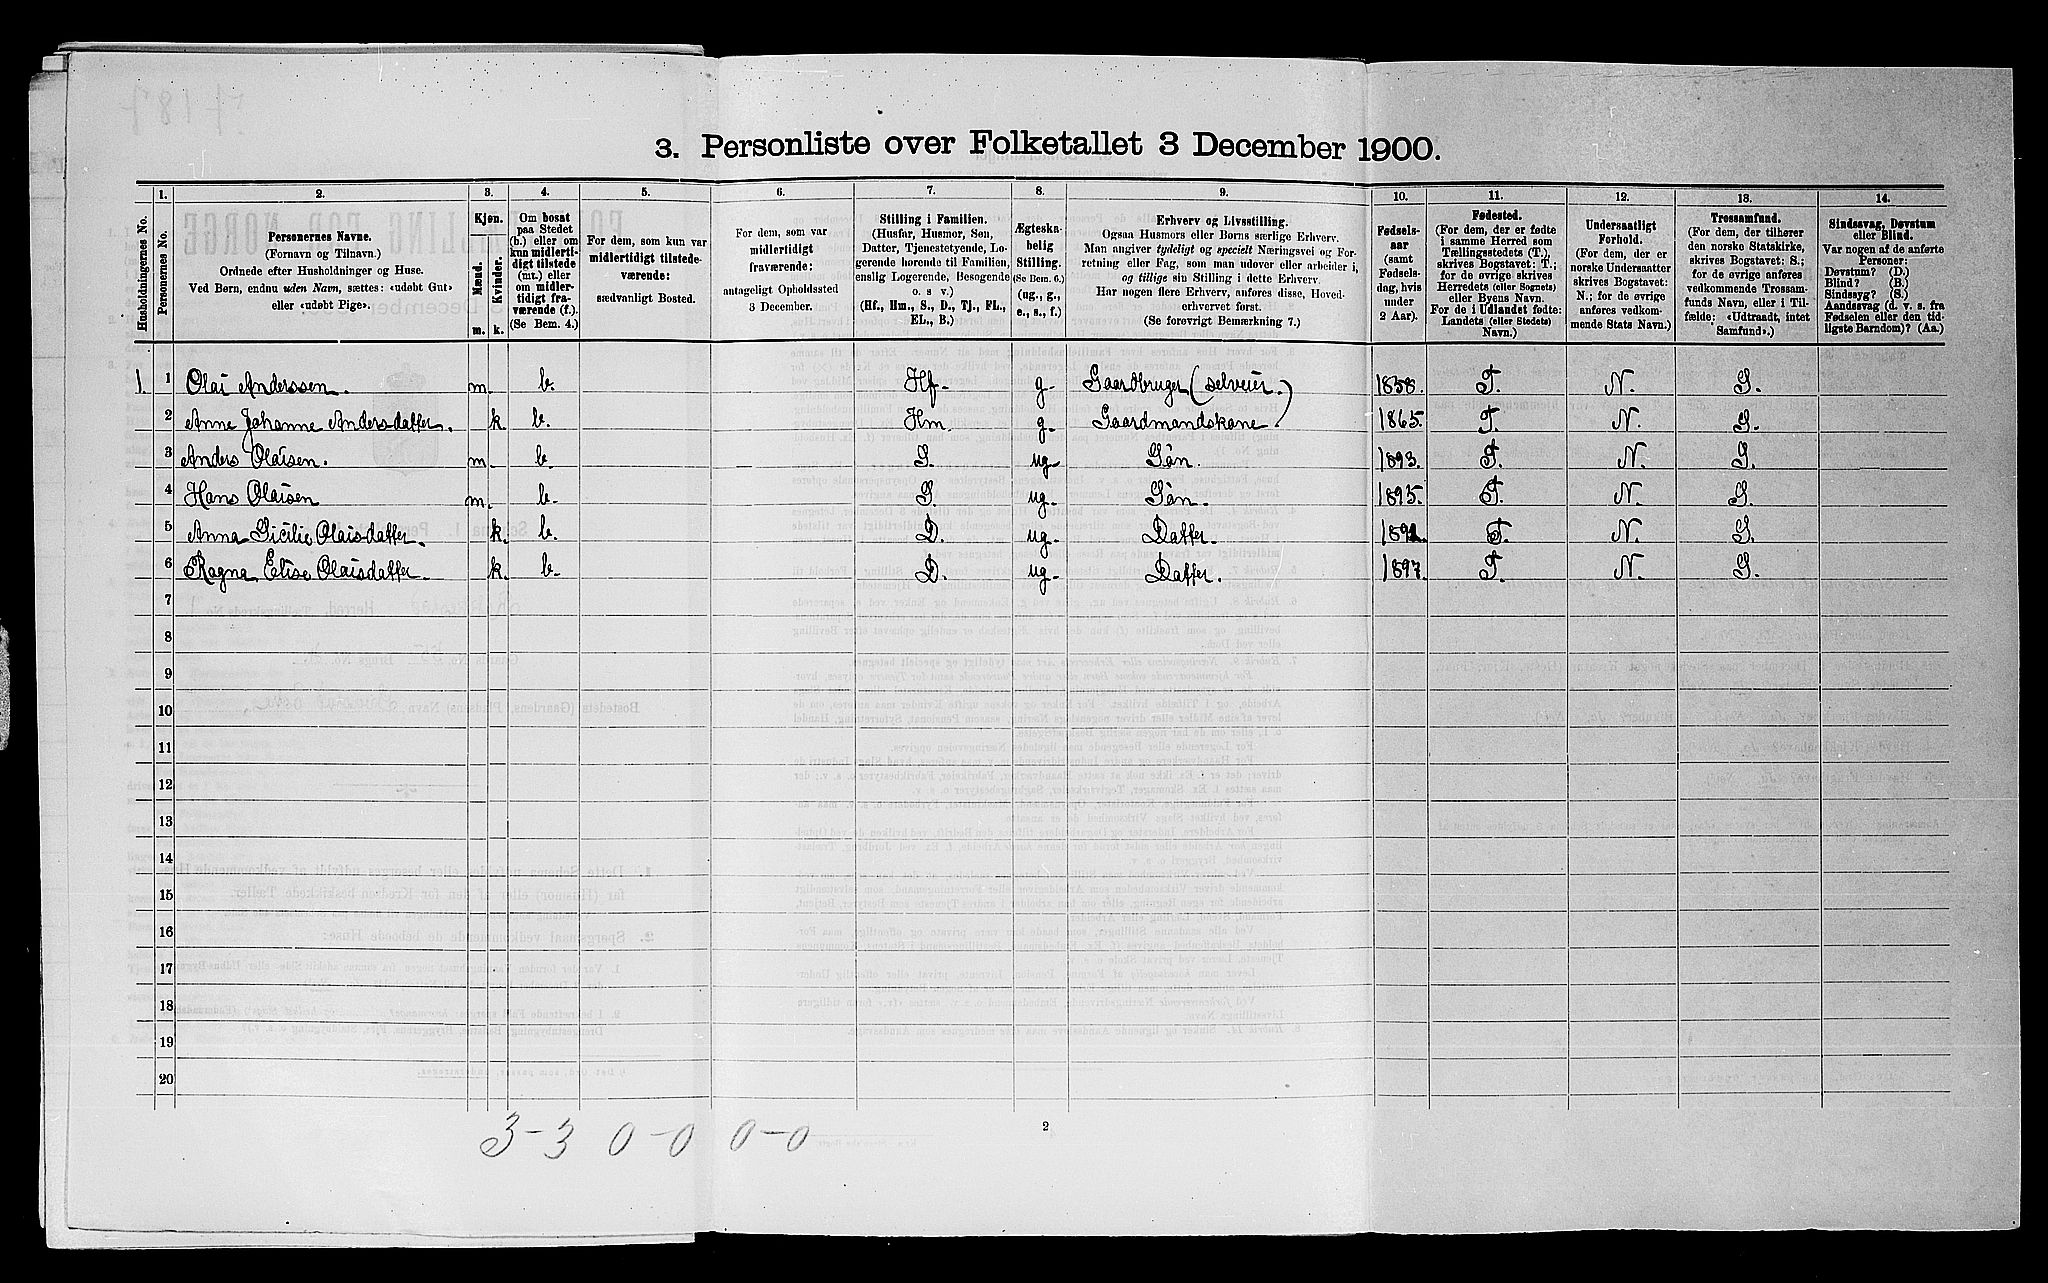 3. Personliste over Folketallet 3 December 1900.
Husholdningernes No.
1.
Personernes No.
2.
Personernes Navne.
(Fornavn og Tilnavn.)
Ordnede efter Husholdninger og Huse.
Ved Børn, endnu uden Navn, sættes: «udøbt Gut»
eller «udøbt Pige».
3.
Kjøn.
Mænd.
Kvinder.
m. k.
4.
Om bosat
paa Stedet
(b.) eller om
kun midlerti-
digt tilstede
(mt.) eller
om midler-
tidigt fra-
værende (f.).
(Se Bem. 4.)
5.
For dem, som kun var
midlertidigt tilstede-
værende:
sædvanligt Bosted.
6.
For dem, som var
midlertidigt
fraværende:
antageligt Opholdssted
3 December.
7.
Stilling i Familien.
(Husfar, Husmor, Søn,
Datter, Tjenestetyende, Lo-
gerende hørende til Familien,
enslig Logerende, Besøgende
o. s v.)
(Hf., Hm., S., D., Tj., FL.,
EL., B.)
8.
Ægteska-
belig
Stilling.
(Se Bem. 6.)
(ug., g.,
e., s., f.)
9.
Erhverv og Livsstilling.
Ogsaa Husmors eller Børns særlige Erhverv.
Man angiver tydeligt og specielt Næringsvei og For-
retning eller Fag, som man udøver eller arbeider i,
og tillige sin Stilling i dette Erhverv.
Har nogen flere Erhverv, anføres disse, Hoved-
erhvervet først.
(Se forøvrigt Bemærkning 7.)
10.
Fødsels-
aar
(samt
Fødsels-
dag, hvis
under
2 Aar).
11.
Fødested.
(For dem, der er fødte
i samme Herred som
Tællingsstedets (T.),
skrives Bogstavet: T.;
for de øvrige skrives
Herredets (eller Sognets)
eller Byens Navn.
For de i Udlandet fødte:
Landets (eller Stedets)
Navn.)
12.
Undersaatligt
Forhold.
(For dem, der er
norske Undersaatter
skrives Bogstavet:
N.; for de øvrige
anføres vedkom-
mende Stats Navn.)
13.
Trossamfund.
(For dem, der tilhører
den norske Statskirke,
skrives Bogstavet: S.;
for de øvrige anføres
vedkommende Trossam-
funds Navn, eller i Til-
fælde: «Udtraadt, intet
Samfund».)
14.
Sindssvag, Døvstum
eller Blind.
Var nogen af de anførte
Personer:
Døvstum? (D.)
Blind? (B.)
Sindssyg? (S.)
Aandssvag (d. v. s. fra
Fødselen eller den tid-
ligste Barndom)? (Aa.)
1. 1 Olai Anderssen. m. b. Hf. g. Gaardbruger (selveier.) 1858. T. N. S.
2 Anne Johanne Andersdatter. k. b. Hm. g. Gaardmandskone 1865. T. N. S.
3 Anders Olaisen. m. b. S. ug. Søn. 1893. T. N. S.
4 Hans Olaisen m. b. S. ug. Søn. 1895. T. N. S.
5 Anna Sicilie Olaisdatter. k. b. D. ug. Datter. T. N. S.
6 Ragna Elise Olaisdatter. k. b. D. ug. Datter. 1897. T. N. S.
7
8
9
10
11
12
13
14
15
16
17
18
19
20
3-3 0-0 0-0
2